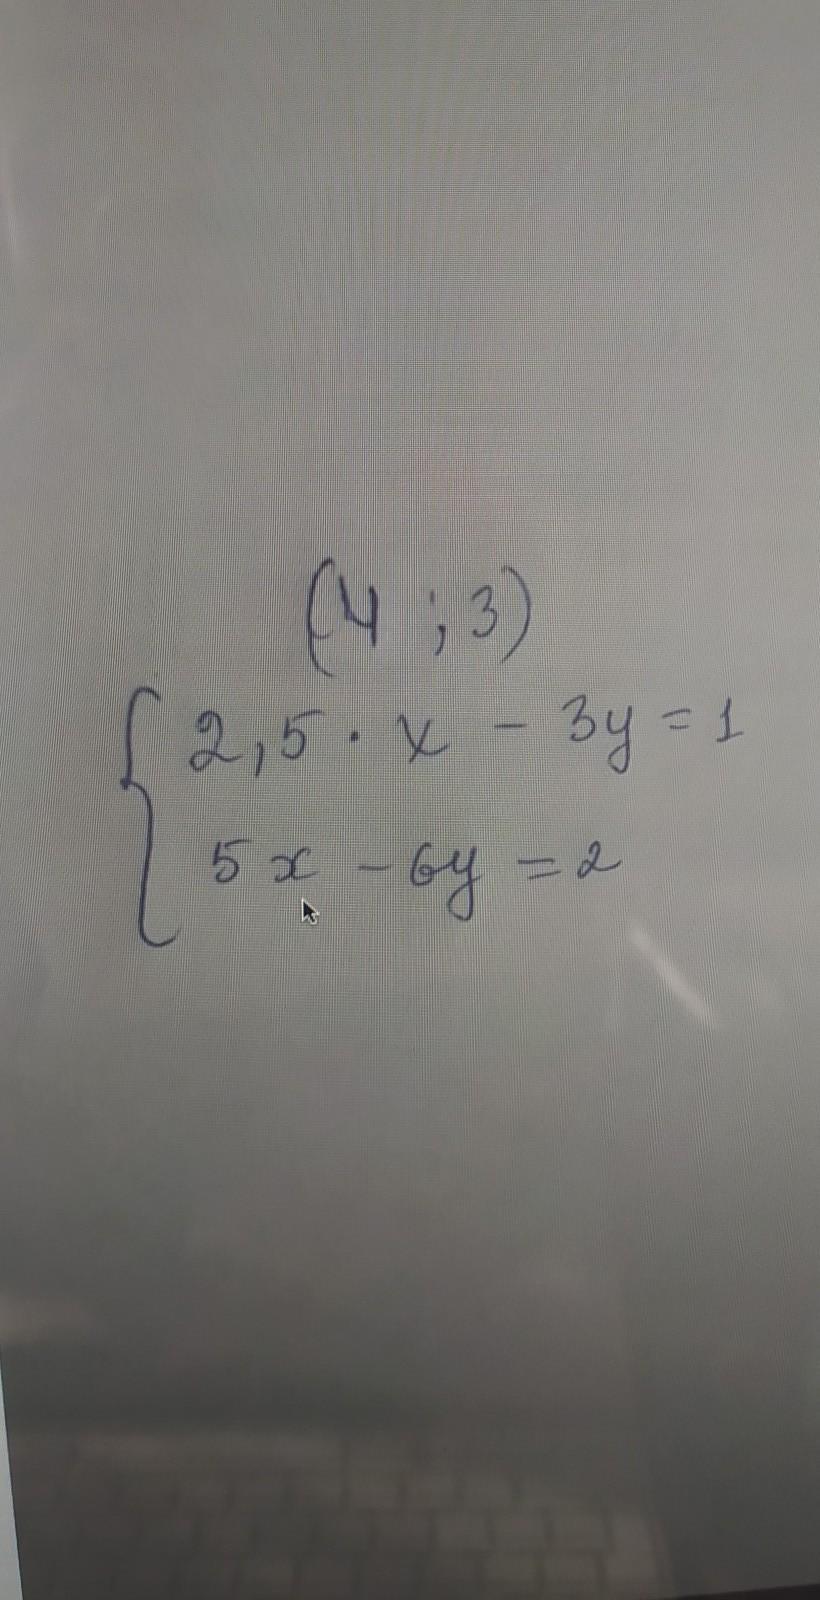 (4 ; 3)
2,5 · x - 3y = 1
5x - 6y = 2